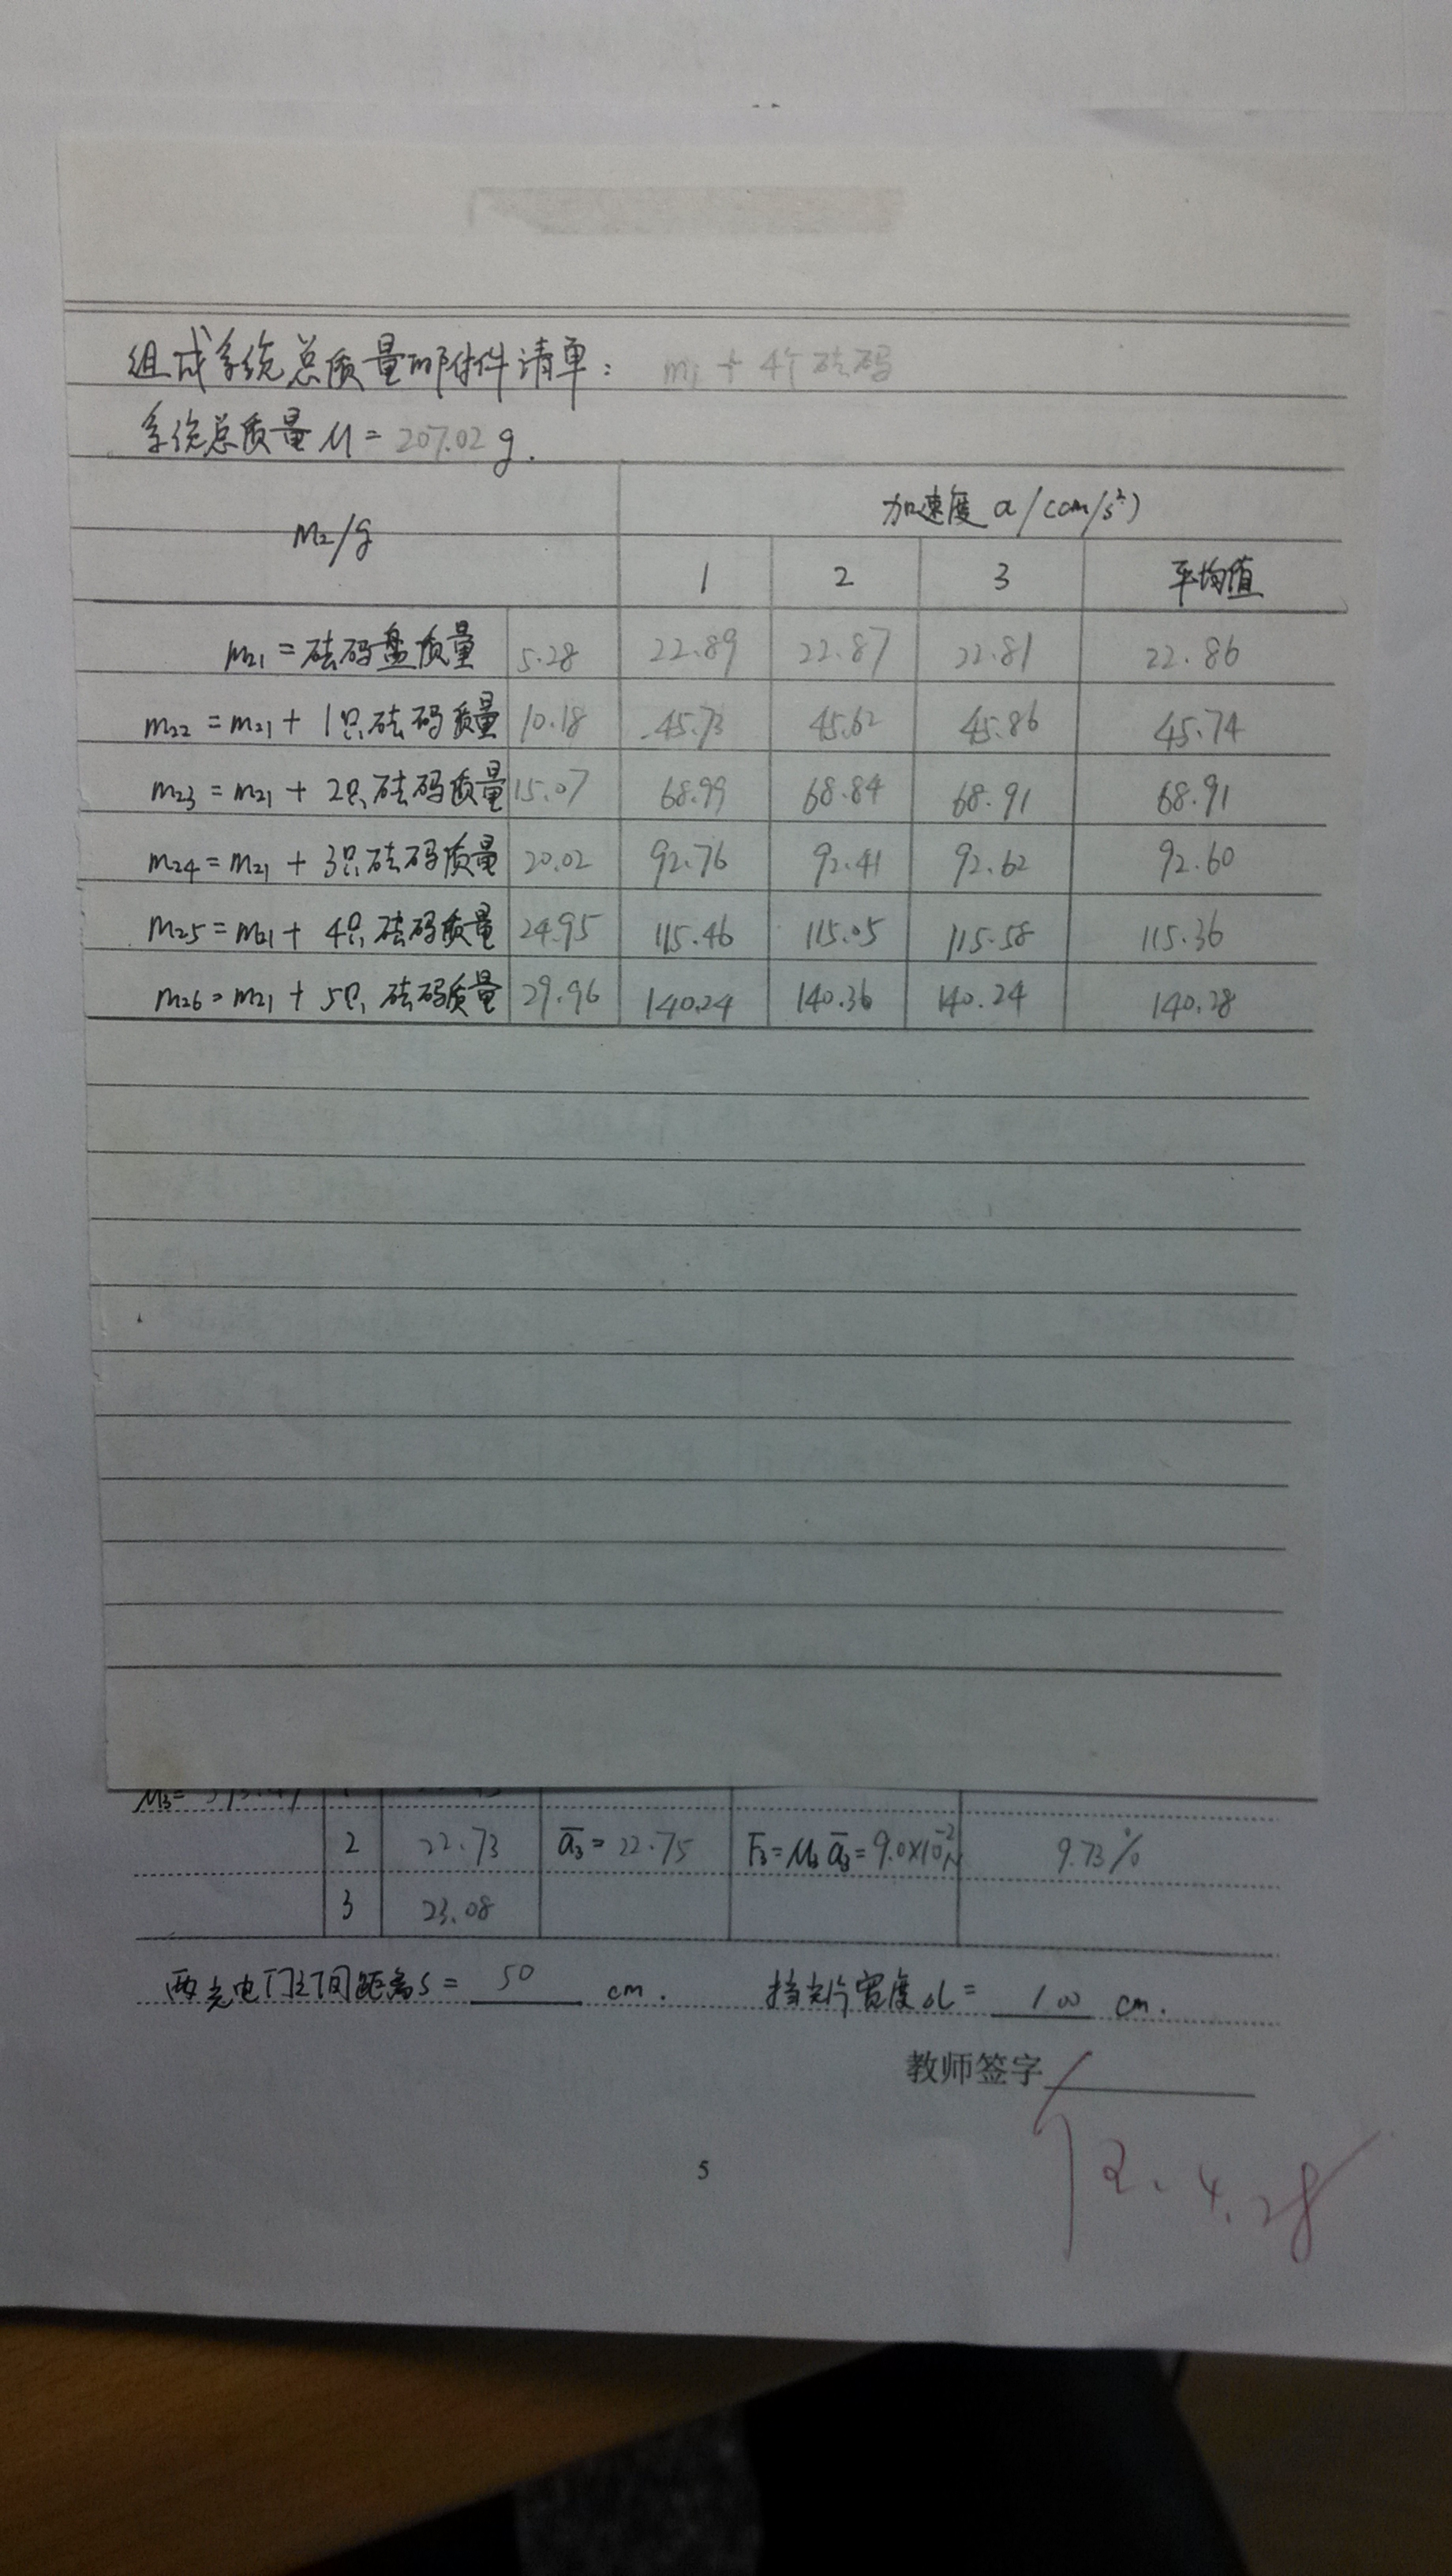 组成系统总质量的附件清单: m₁ + 4个砝码
系统总质量 M = 207.02 g.
m₂/g 加速度 a/(cm/s²)
1 2 3 平均值
m₂₁ = 砝码盘质量 5.28 22.89 22.87 22.81 22.86
m₂₂ = m₂₁ + 1只砝码质量 10.18 45.73 45.62 45.86 45.74
m₂₃ = m₂₁ + 2只砝码质量 15.07 68.99 68.84 68.91 68.91
m₂₄ = m₂₁ + 3只砝码质量 20.02 92.76 92.41 92.62 92.60
m₂₅ = m₂₁ + 4只砝码质量 24.95 115.46 115.05 115.58 115.36
m₂₆ = m₂₁ + 5只砝码质量 29.96 140.24 140.36 140.24 140.28
M₃=
2 22.73 a̅₃ = 22.75 F₃ = M₃ a̅₃ = 9.0×10⁻²N 9.73%
3 23.08
两光电门之间距离 S = 50 cm. 挡光片宽度 ΔL = 1.00 cm.
教师签字
12.4.28
5